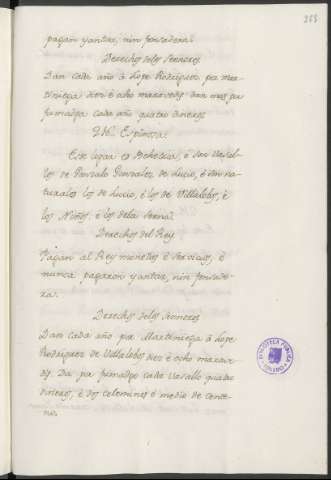 253
pagan yantar, nin fonsadera.
Derechos delos Senores
Dan cada año à Lope Rodriguez por mar-
tiniega diez è ocho maravedis dan mas por
fumadgo cada año quatro dineros
Espinosa.
Este lugar es Behetria, è son vasal-
los de Gonzalo Gonzalez de Lucio, è son na-
turales los de Lucio, è los de Villalobos, è
los Niños, è los dela Serna.
Derechos del Rey
Pagan al Rey monedas è servicios, è
nunca pagaron yantar, nin fonsade-
ra.
Derechos delos Senores
Dan cada año por Martiniega à Lope
Rodriguez de Villalobos diez è ocho marave-
dis. Da por fumadgo cada vasallo quatro
dineros, è dos celemines è medio de cente-
no.
BIBLIOTECA PUBLICA